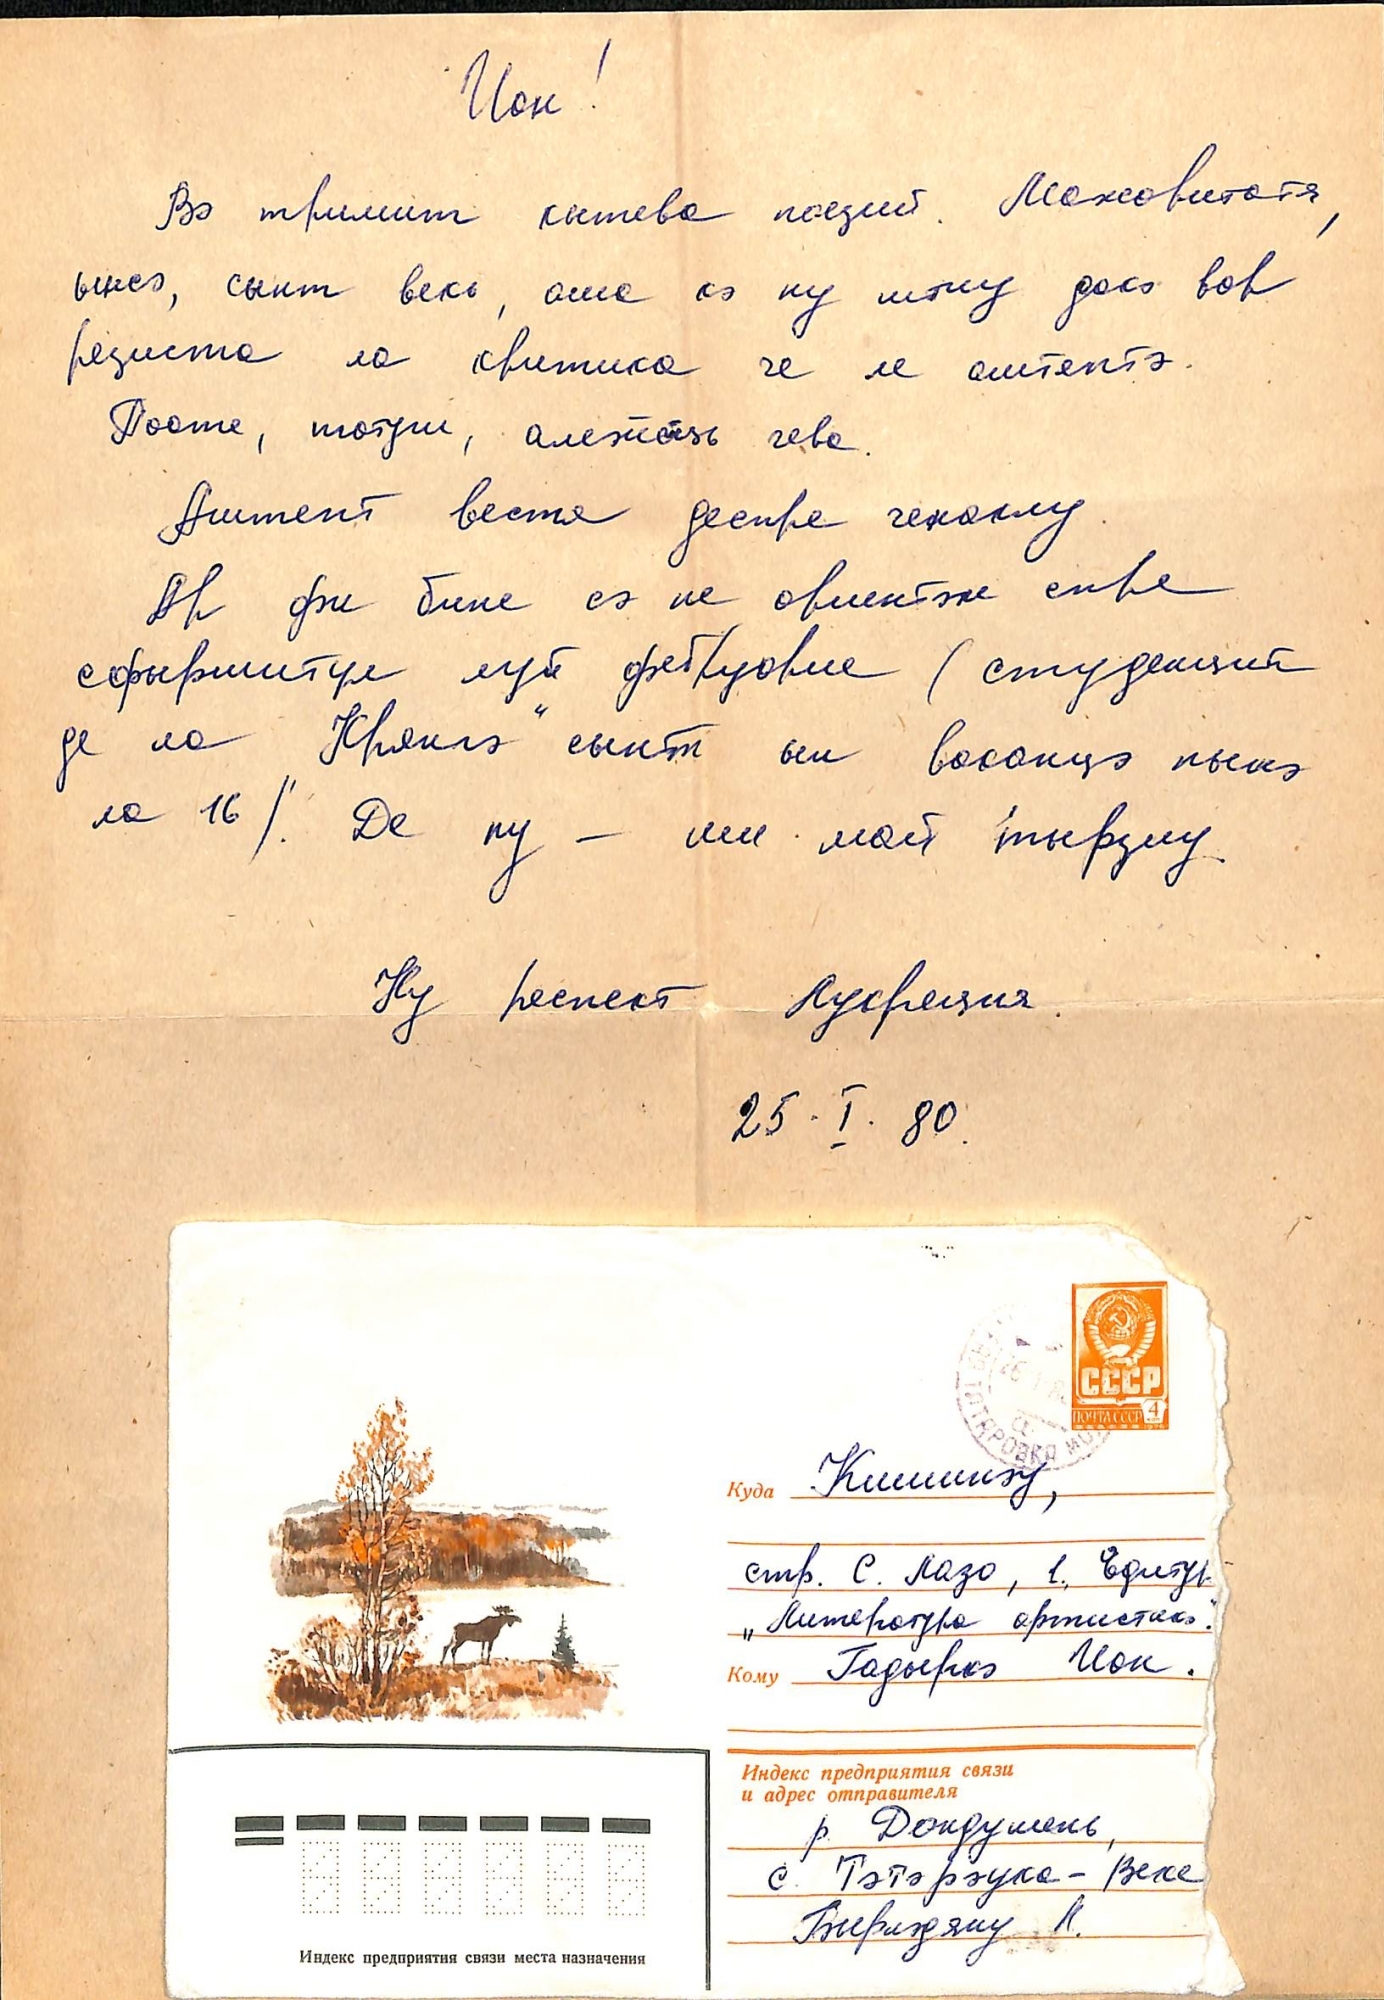 Ион!
Вэ тримит кытева поезий. Мажоритатя,
ынсэ, сынт векь, аша кэ ну штиу дакэ вор
резиста ла критика че ле аштептэ.
Поате, тотуши, алежець чева.
Аштепт весте деспре ченаклу.
Ар фи бине сэ не ориентэм спре
сфыршитул луй фебруарие (студенций
де ла „Крянгэ" сынт ын ваканцэ пынэ
ла 16). Де ну – ши май тырзиу.
Ку респект Лукреция.
25. I. 80.
СССР
ПОЧТА СССР 4
Куда Кишинэу,
стр. С. Лазо, 1, Едитура
„Литература артистикэ".
Кому Гадыркэ Ион.
Индекс предприятия связи
и адрес отправителя
р. Дондушень,
с. Тэтэрэука-Веке
Бырлэдяну Л.
Индекс предприятия связи места назначения